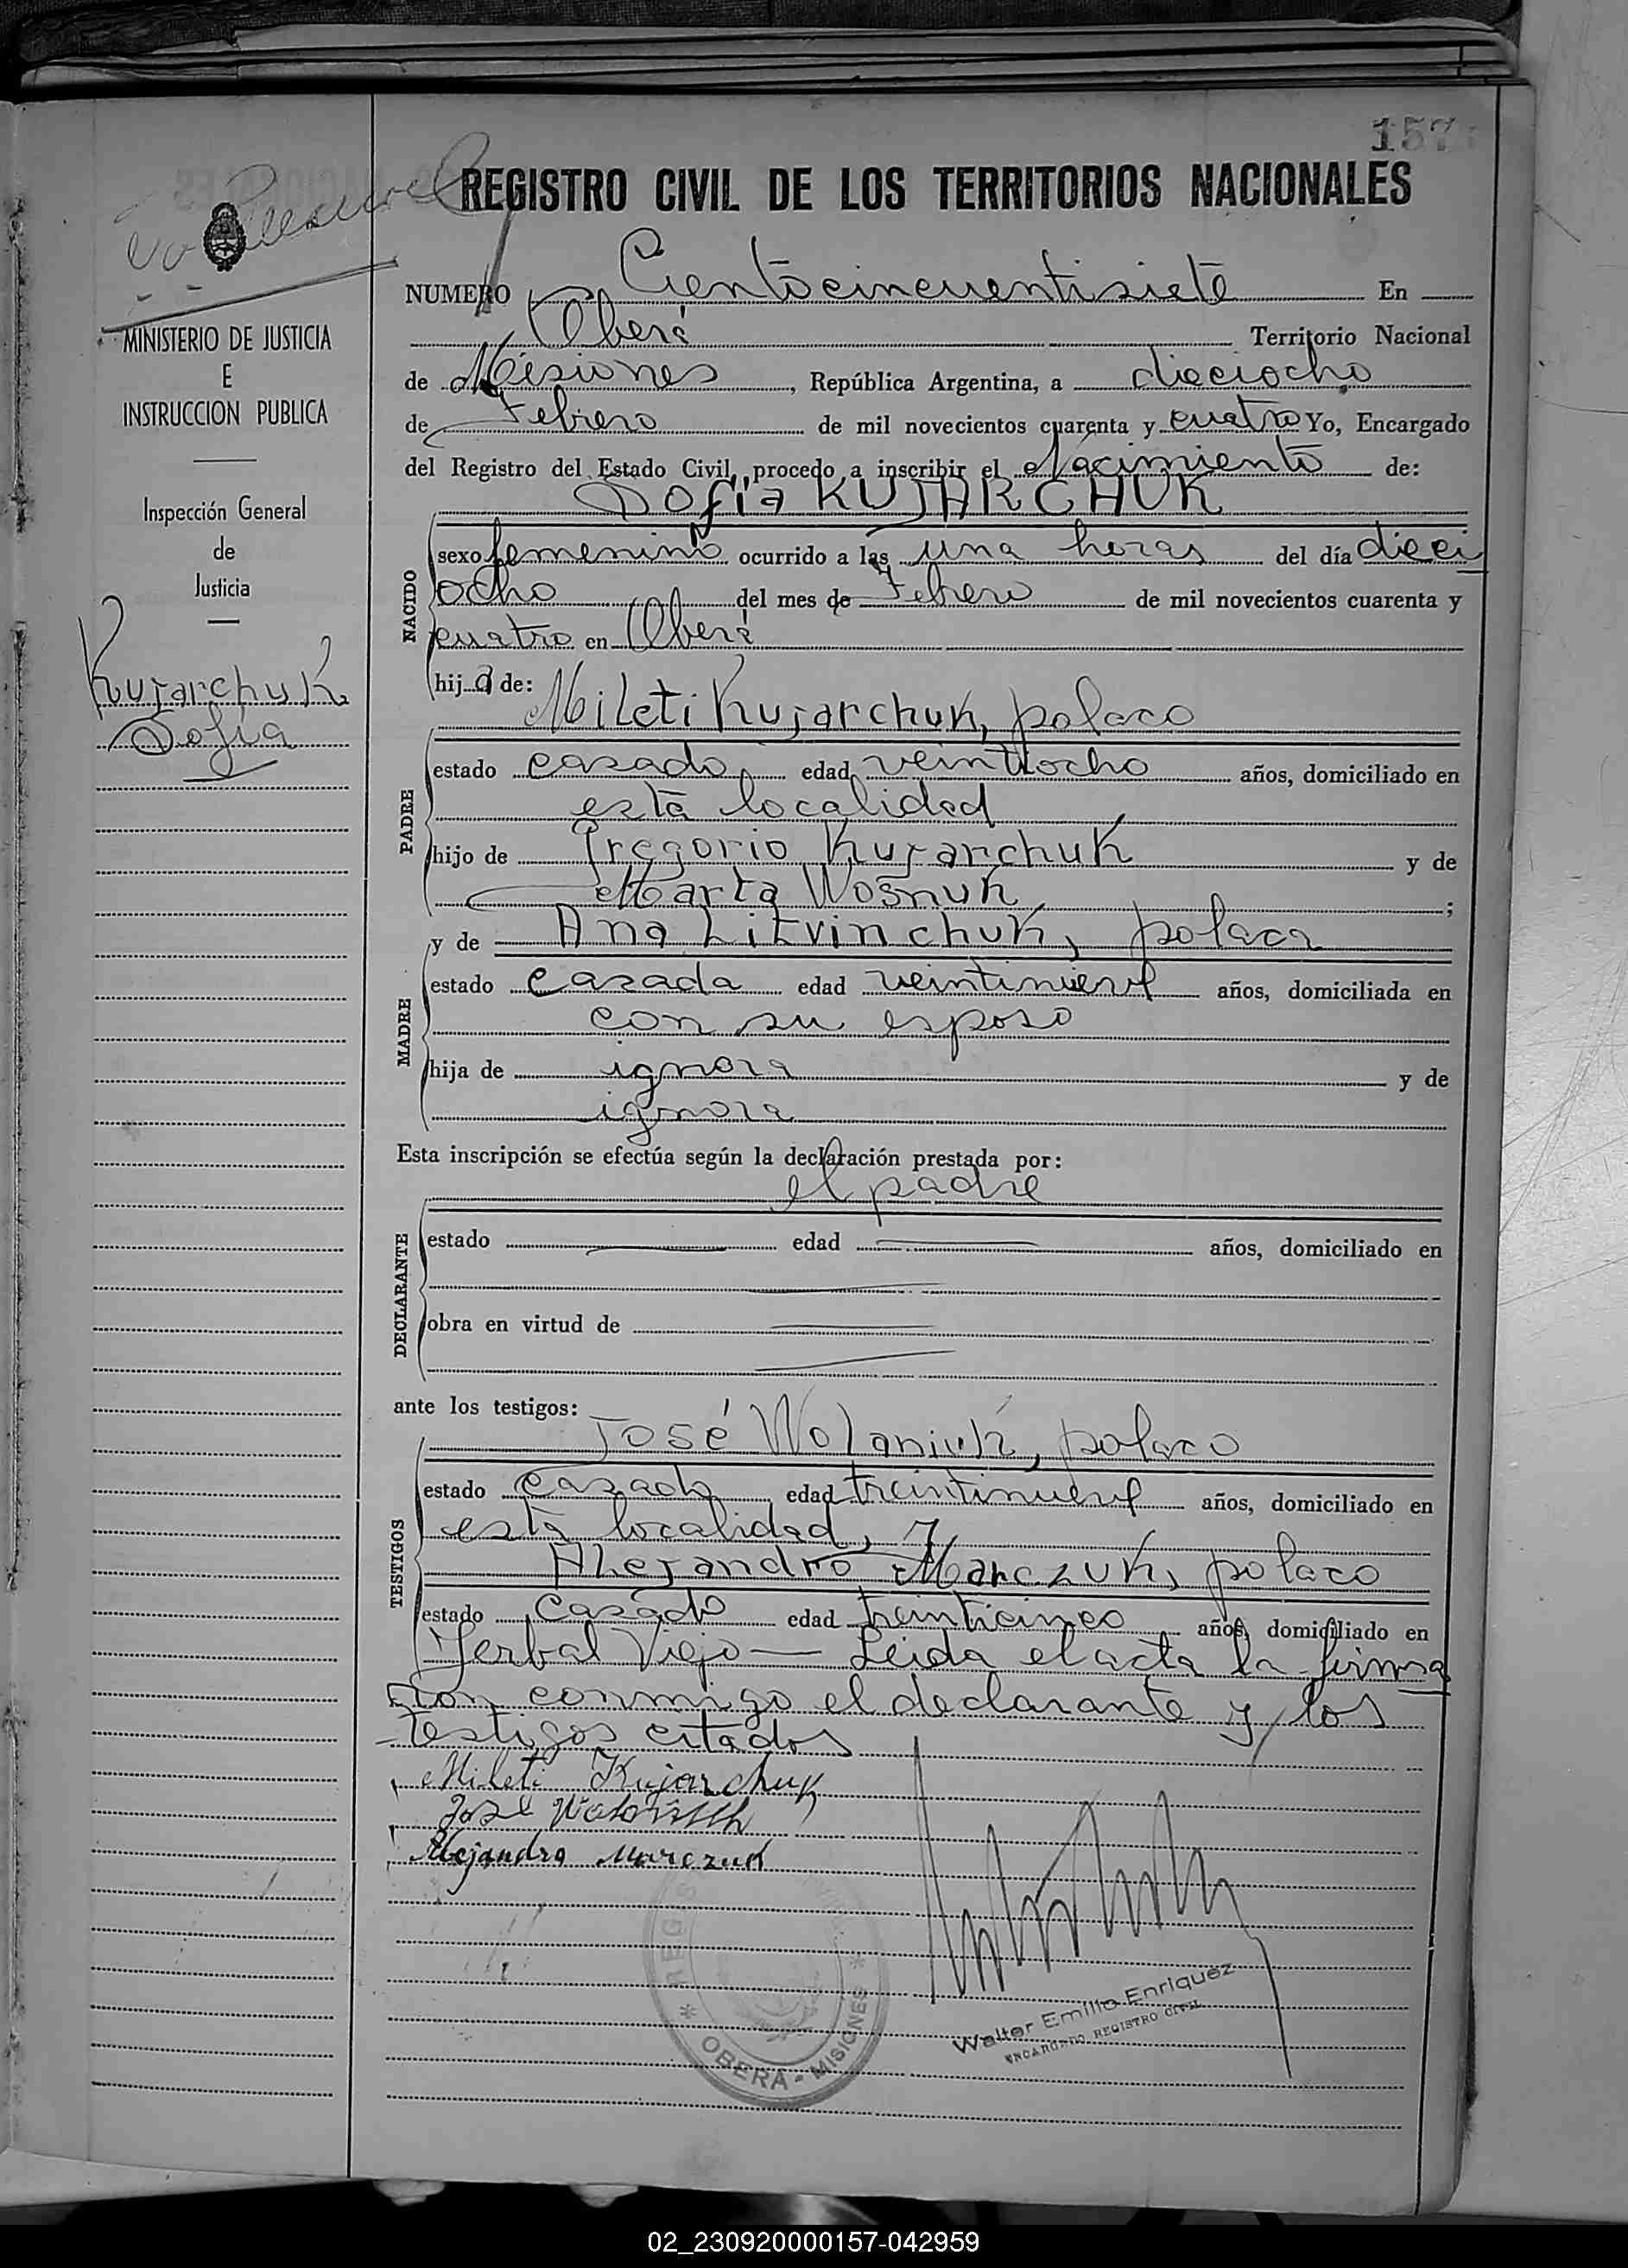 157
REGISTRO CIVIL DE LOS TERRITORIOS NACIONALES
MINISTERIO DE JUSTICIA
E
INSTRUCCION PUBLICA
Inspección General
de
Justicia
Kujarchuk
Sofía
NUMERO Cientocincuentisiete En
Oberá Territorio Nacional
de Misiones, República Argentina, a dieciocho
de Febrero de mil novecientos cuarenta y cuatro Yo, Encargado
del Registro del Estado Civil, procedo a inscribir el Nacimiento de:
Sofía KUJARCHUK
NACIDO
sexo femenino ocurrido a las una horas del día dieci
ocho del mes de Febrero de mil novecientos cuarenta y
cuatro en Oberá
hija de:
Mileti Kujarchuk, polaco
PADRE
estado casado, edad veintiocho años, domiciliado en
esta localidad
hijo de Gregorio Kujarchuk y de
Marta Wosnuk ;
MADRE
y de Ana Litvinchuk, polaca
estado casada edad veintinueve años, domiciliada en
con su esposo
hija de ignora y de
ignora
Esta inscripción se efectúa según la declaración prestada por:
el padre
DECLARANTE
estado edad años, domiciliado en
obra en virtud de
ante los testigos:
José Wolaniuk, polaco
TESTIGOS
estado casado edad treintinueve años, domiciliado en
esta localidad, y
Alejandro Marczuk, polaco
estado casado edad treinticinco años, domiciliado en
Yerbal Viejo — Leida el acta la firma
ron conmigo el declarante y los
testigos citados
Mileti Kujarchuk
Alejandro Marczuk
OBERA - MISIONES
Walter Emilio Enriquez
ENCARGADO REGISTRO CIVIL
02_230920000157-042959